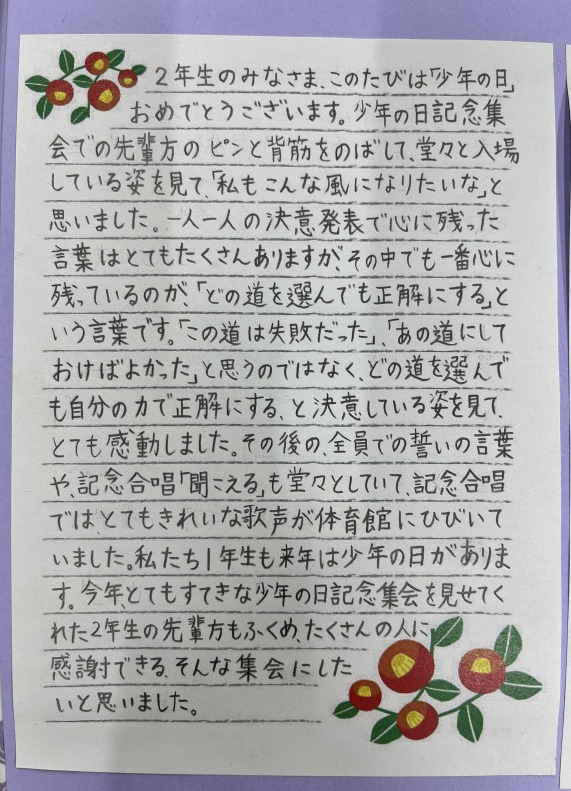 2年生のみなさま、このたびは「少年の日」
おめでとうございます。少年の日記念集
会での先輩方のピンと背筋をのばして、堂々と入場
している姿を見て、「私もこんな風になりたいな」と
思いました。一人一人の決意発表で心に残った
言葉はとてもたくさんありますが、その中でも一番心に
残っているのが、「どの道を選んでも正解にする」と
いう言葉です。「この道は失敗だった」、「あの道にして
おけばよかった」と思うのではなく、どの道を選んで
も自分の力で正解にする、と決意している姿を見て、
とても感動しました。その後の、全員での誓いの言葉
や、記念合唱「聞こえる」も堂々としていて、記念合唱
では、とてもきれいな歌声が体育館にひびいて
いました。私たち1年生も来年は少年の日がありま
す。今年、とてもすてきな少年の日記念集会を見せてく
れた2年生の先輩方もふくめ、たくさんの人に
感謝できる、そんな集会にした
いと思いました。